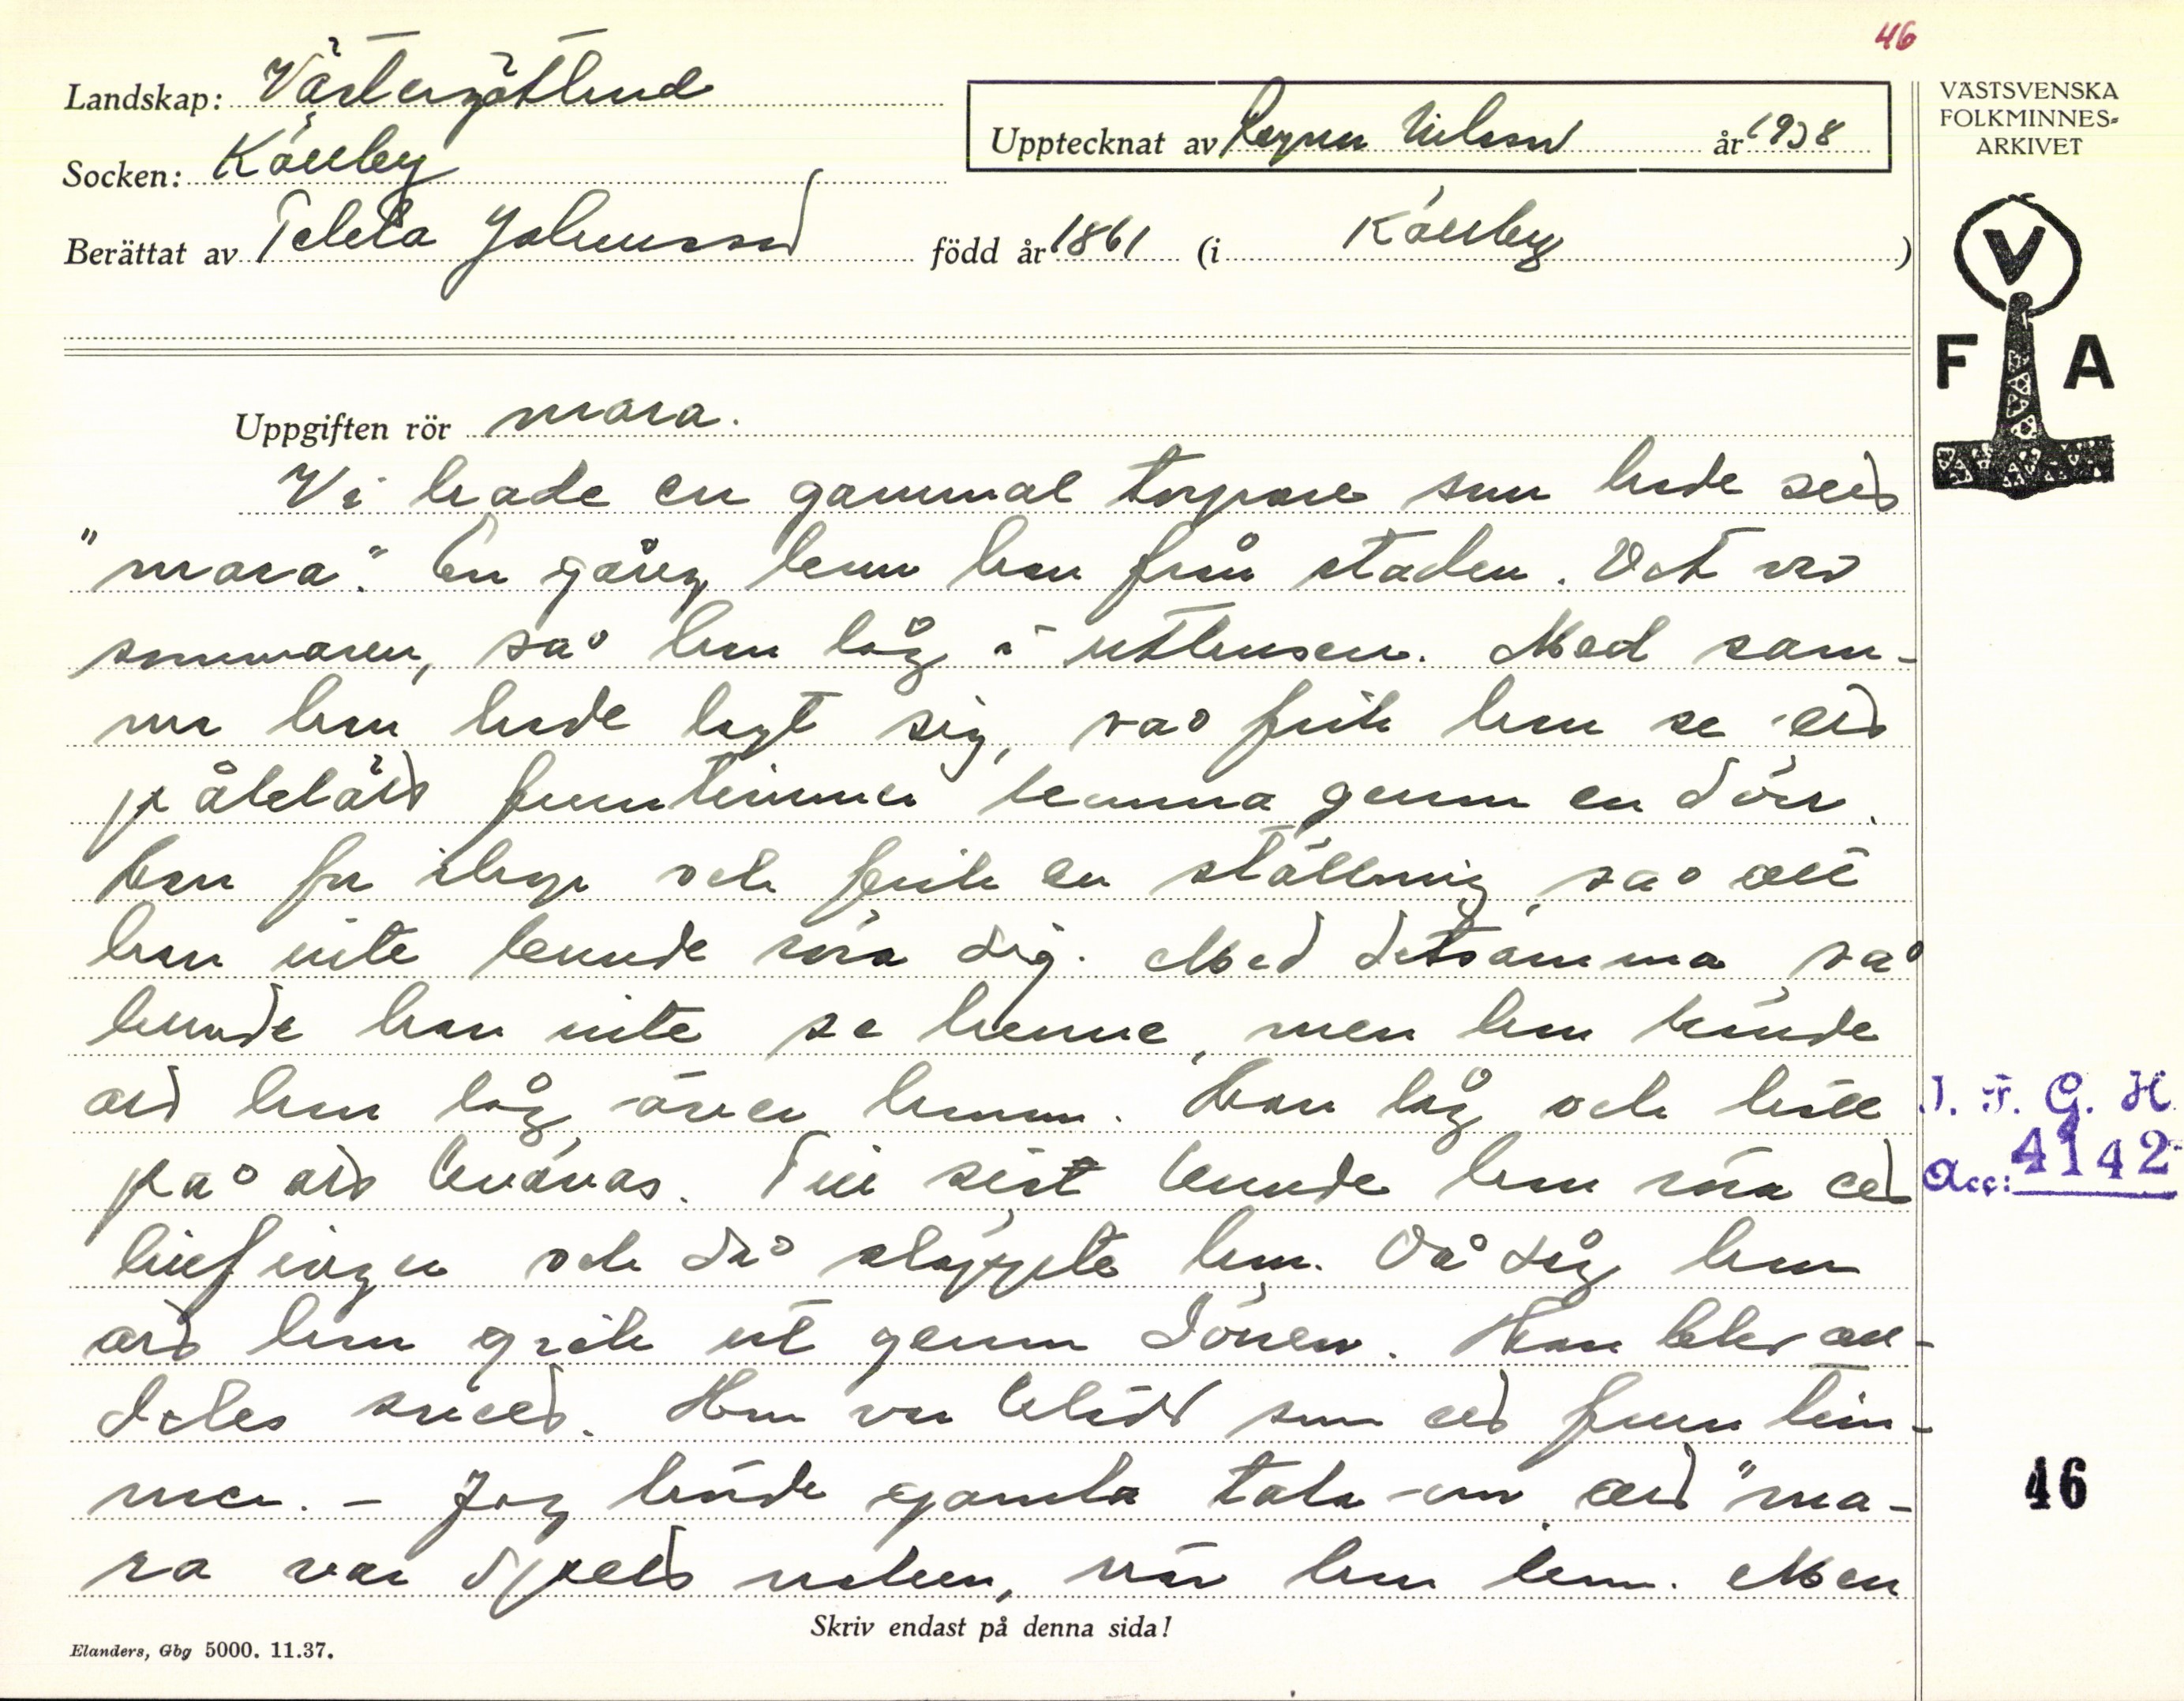 46
Landskap: Västergötland
Socken: Källby
Upptecknat av Ragnar Nilsson år 1938
Berättat av Tekla Johansson född år 1861 (i Källby)
VÄSTSVENSKA
FOLKMINNES-
ARKIVET
V
F A
Uppgiften rör mara.
Vi hade en gammal torpare som hade sett
"mara". En gång kom han från staden. Det var
sommaren, så han låg i uthusen. Med sam-
ma han hade lagt sig, så fick han se ett
påklätt fruntimmer komma genom en dörr.
Han for ihop och fick en ställning, så att
han inte kunde röra sig. Med detsamma, så
kunde han inte se henne, men han kände
att hon låg över honom. Han låg och höll
på att kvävas. Till sist kunde han röra ett
lillfinger och då släppte hon. Då såg han
att hon gick ut genom dörren. Han blev all-
deles svett. Hon var klädd som ett fruntim-
mer. - Jag hörde gamla tala om att "ma-
ra var spets naken, när hon kom. Men
J. F. G. H.
Acc: 4142
46
Skriv endast på denna sida!
Elanders, Gbg 5000. 11.37.